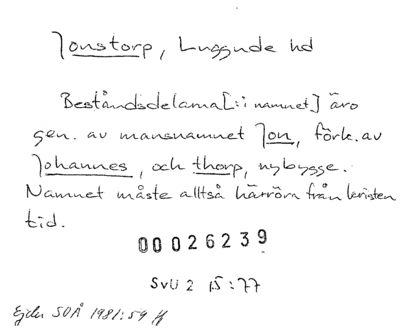 Jonstorp, Luggude hd
Beståndsdelarna [: i namnet] äro
gen. av mansnamnet Jon, förk. av
Johannes, och thorp, nybygge.
Namnet måste alltså härröra från kristen
tid.
00026239
SvU 2 15:77
SOÅ 1981:59